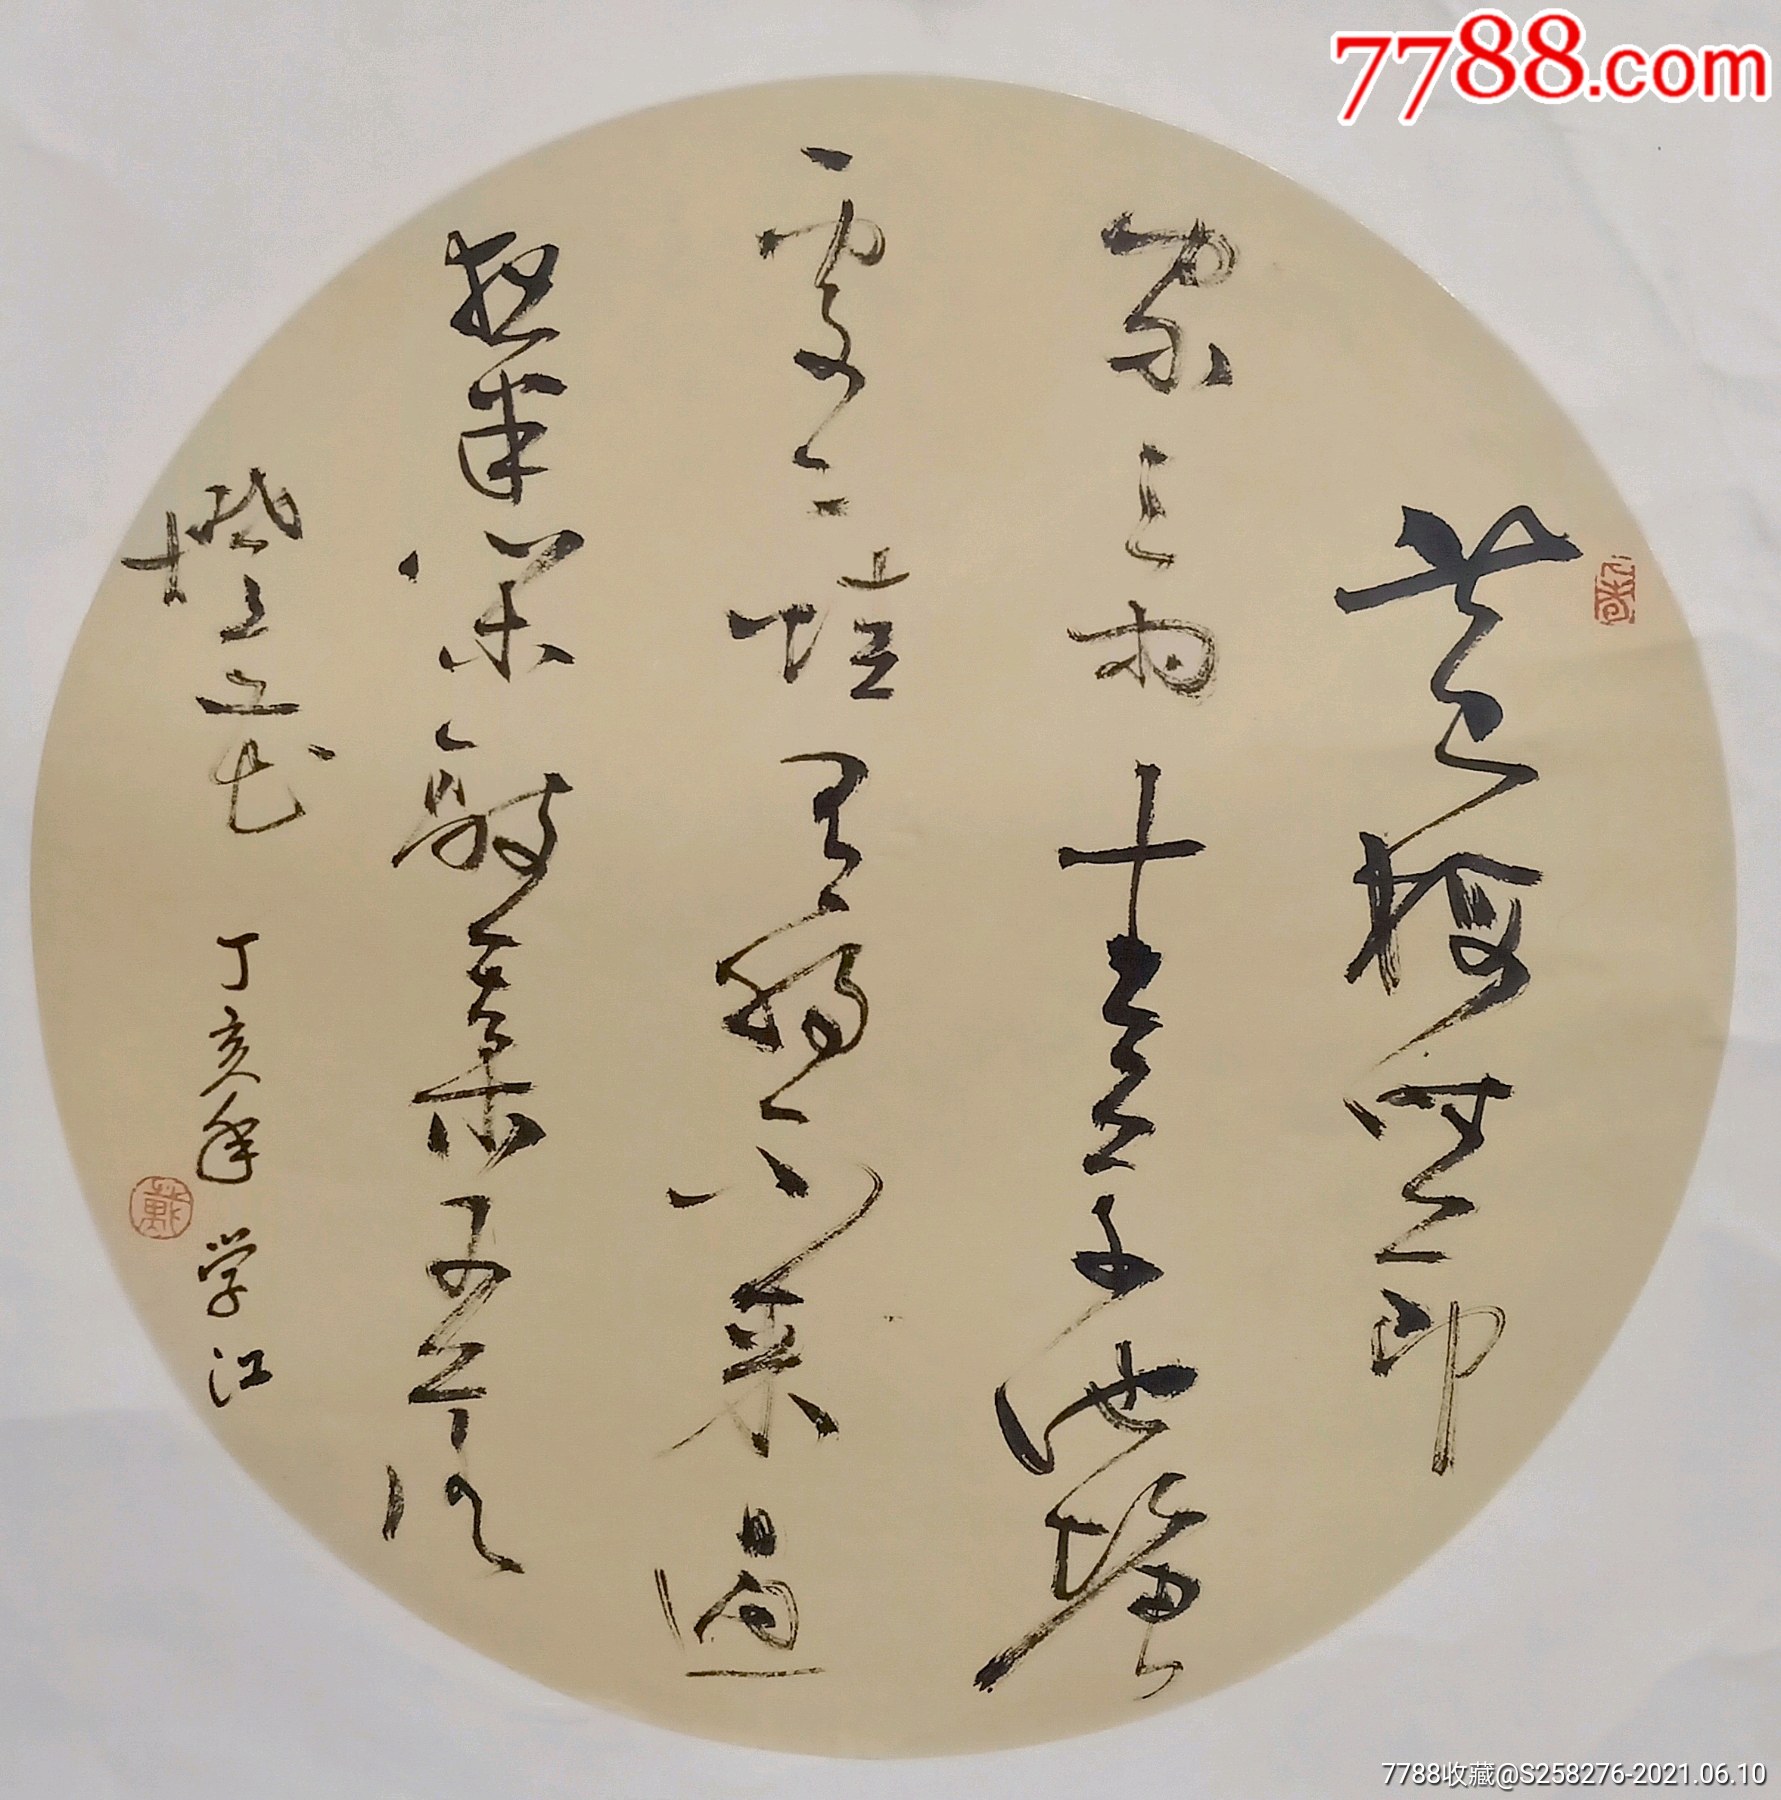 黄梅时节
家家雨青草池塘
处处蛙有约不来过
夜半闲敲棋子落
灯花 丁亥年 学江
戴
7788.com
7788收藏@S258276-2021.06.10